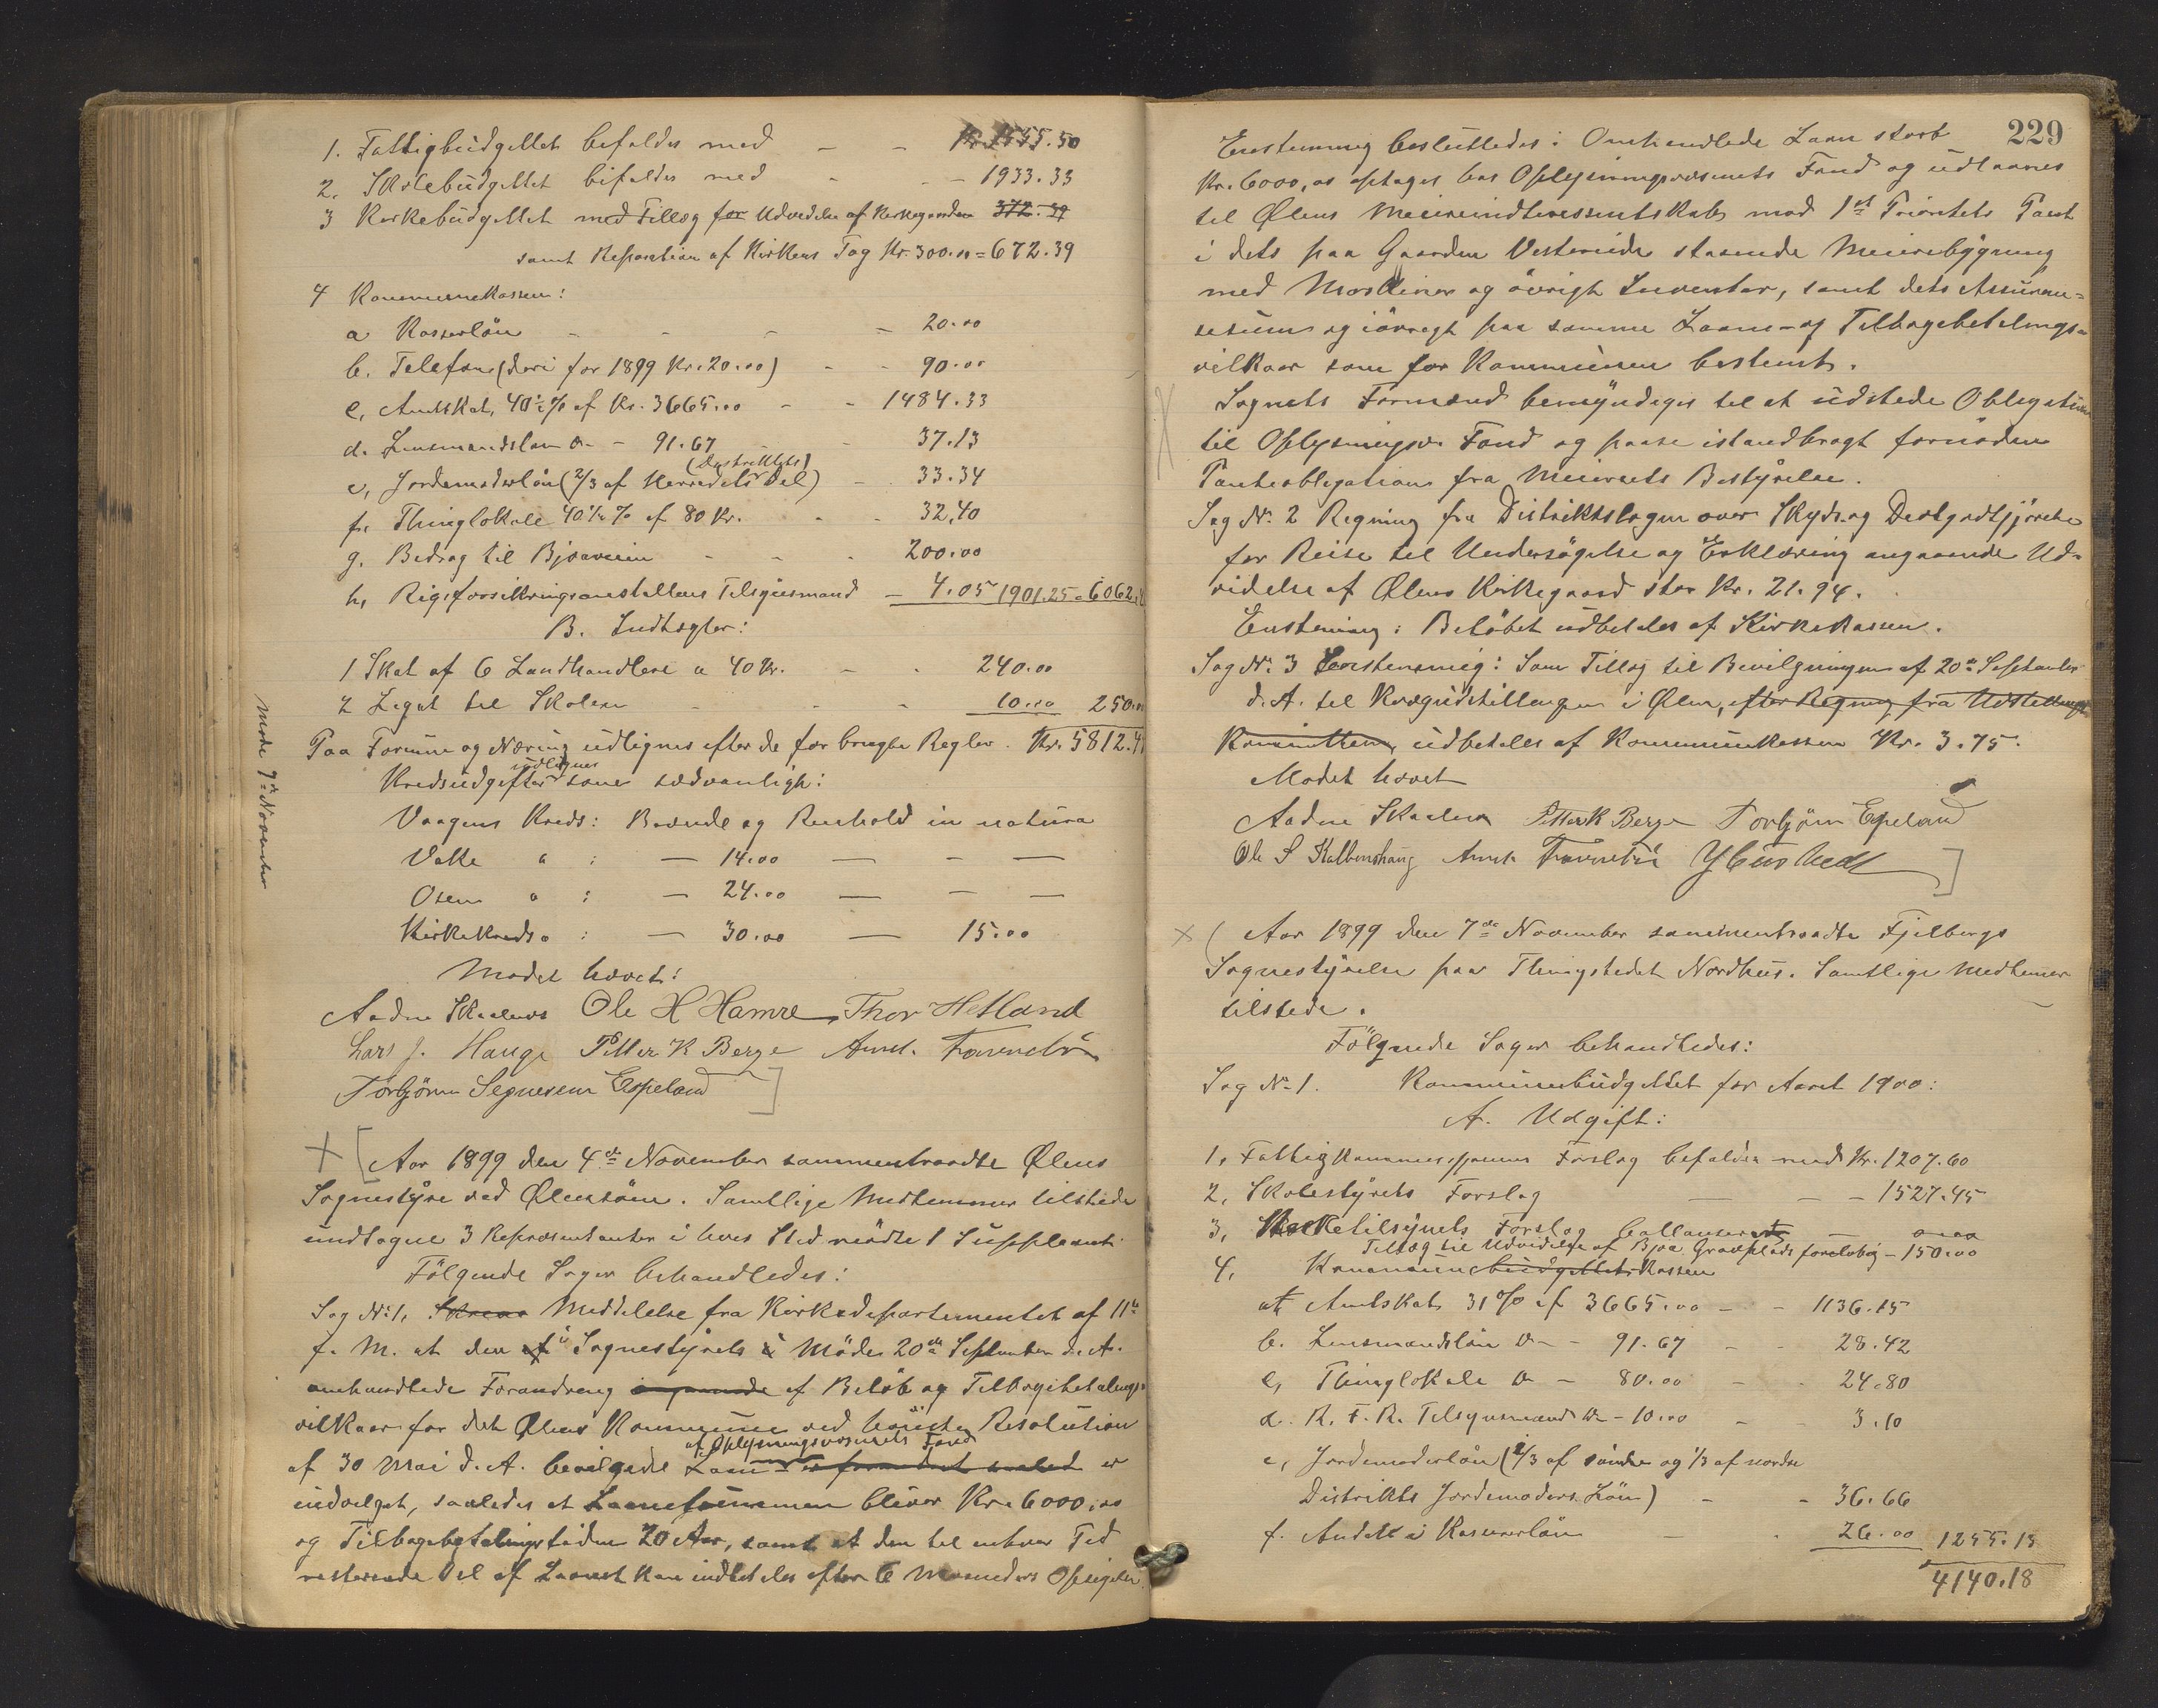 1. Fattigbudgettet bifaldes med - - Kr. 1555.50
2. Skolebudgettet bifaldes med - - 1933.33
3 Kirkebudgettet med Tillæg for Udvidelse af Kirkegaarden 372.39
samt Reparation af Kirkens Tag Kr. 300.00 = 672.39
4 Kommunekassen:
a Kasserløn - - - - 20.00
b. Telefon (deri for 1899 Kr. 20.00) - - 90.00
c, Amtskat, 40½% af Kr. 3665.00 - - 1484.33
d. Lensmandsløn D- - 91.67 - - 37.13
(Distriktets)
e, Jordemoderløn (2/3 af Herredets Del) - 33.34
f. Thinglokale 40½% af 80 Kr. - - 32,40
g. Bidrag til Bjoaveien - - - 200.00
h, Rigsforsikringsanstaltens Tilsynsmand - 4.05 1901.25 = 6062.
B. Indtægter:
1 Skat af 6 Landhandlere a 40 Kr. - - 240.00
2 Legat til Skolen - - - 10.00 250.00
Paa Formue og Næring udlignes efter de før brugte Regler. Kr. 5812.
udlignes
Kredsudgifter som sædvanligt:
Vaagens Kreds: Brænde og Renhold in natura
Vakke " : — 14.00 — — —
Osen " : — 24.00 — — —
Kirkekreds " : — 30.00 — 15.00
Mødet hævet:
Aadne Skaalnes Ole H Hamre, Thor Hetland
Lars J. Hauge Petter K Berge Amt. Travnebø
Torbjörn Segnesen Espeland
Møde 7de November
Aar 1899 den 4de November sammentraadte Ølens
Sognestyre ved Ølensøen. Samtlige Medlemmer tilstede
undtagne 3 Repræsentanter i hvis Sted mødte 1 Suppleant.
Følgende Sager behandledes:
Sag No 1, Meddelelse fra Kirkedepartementet af 11te
f. M. at den af i Sognestyrets i Møde 20de September d. A.
omhandlede Forandring angaaende af Beløb og Tilbagebetalings-
vilkaar for det Ølens Kommune ved høieste Resolution
af Oplysningsvæsenets Fond
af 30 Mai d. A. bevilgede Laan er forandret saaled er
indvilget, saaledes at Laanesummen bliver Kr. 6000.00
og Tilbagebetalingstiden 20 Aar, samt at den til enhver Tid
resterende Del af Laanet kan indbetales efter 6 Maaneders Opsigelse.
229
Enstemmig besluttedes: Omhandlede Laan stort
Kr. 6000,00 optages hos Oplysningsvæsenets Fond og udlaanes
til Ølens Meieriinteressentskab mod 1ste Prioritets Pant
i dets paa Gaarden Vestereide staaende Meieribygning
med Maskiner og øvrigt Inventar, samt dets Assuran-
sesum og iøvrigt paa samme Laans- og Tilbagebetalings-
vilkaar som for Kommunen bestemt.
Sognets Formænd bemyndiges til at udstede Obligation
til Oplysningsv. Fond og paase istandbragt fornøden
Panteobligation fra Meieriets Bestyrelse.
Sag No 2 Regning fra Distriktslægen over Skyds og Diætgodtgjørelse
for Reise til Undersøgelse og Erklæring angaaende Ud-
videlse af Ølens Kirkegaard stor Kr. 21.94.
Enstemmig: Beløbet udbetales af Kirkekassen.
Sag No 3 Enstemmig: Som Tillæg til Bevilgningen af 20de September
d. A. til Kvægudstillingen i Ølen, efter Regning fra Udstillings
Komiteen, udbetales af Kommunekassen Kr. 3.75.
Mødet hævet
Aadne Skaalnes Petter K Berge Torbjörn Espeland
Ole S Kalbenshaug Amt. Travnebø
Aar 1899 den 7de November sammentraadte Fjelbergs
Sognestyrelse paa Thingstedet Nordhus. Samtlige Medlemmer
tilstede.
Følgende Sager behandledes:
Sag No 1. Kommunebudgettet for Aaret 1900:
A. Udgift:
1, Fattigkommissionens Forslag bifaldes med Kr. 1207.60
2, Skolestyrets Forslag — — - 1527.45
3, Kirketilsynets Forslag ballanserer —
Tillæg til Udvidelse af Bjoa Gravplads foreløbig - 150.00
4, Kommunebudgettets Kassen
a, Amtskat 31% af 3665.00 - - 1136.15
b. Lensmandsløn D- - 91.67 - - 28.42
c, Thinglokale D - 80.00 - - 24.80
d. R. F. R. Tilsynsmand D - 10.00 - - 3.10
e, Jordemoderløn (1/3 af søndre og 1/3 af nordre
Distrikts Jordemoders Løn) - - 36.66
f. Andel i Kassererløn - - 26.00 1255.13
4140.18